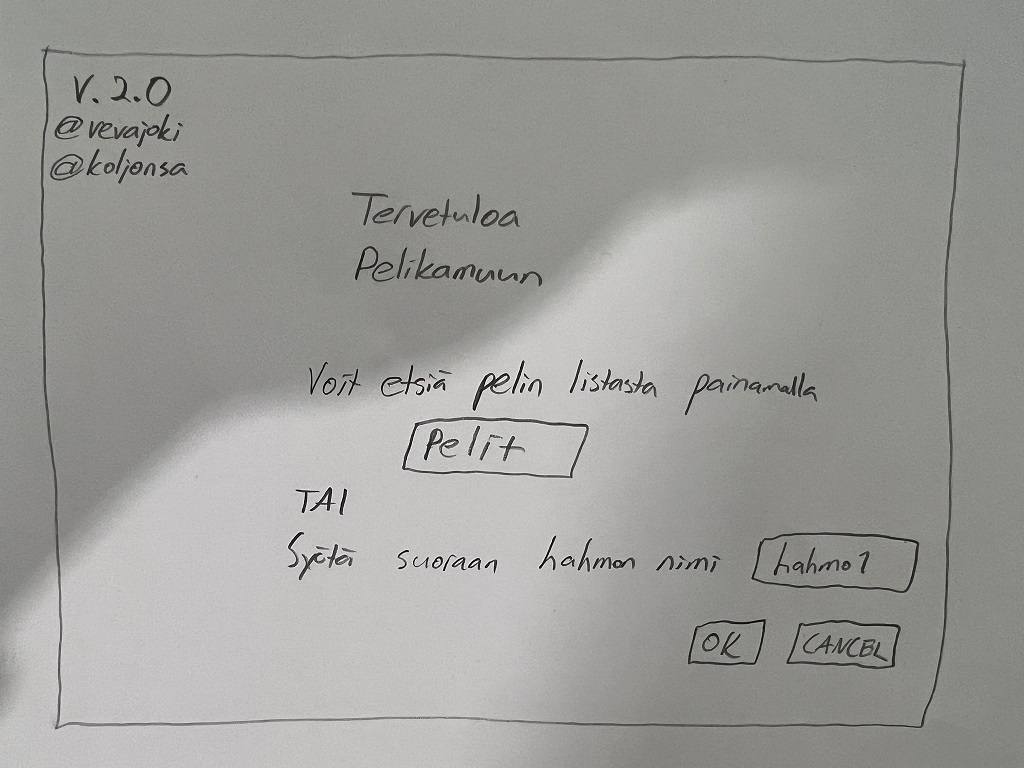 V. 2.0
@vevajoki
@koljonsa
Tervetuloa
Pelikamuun
Voit etsiä pelin listasta painamalla
Pelit
TAI
Syötä suoraan hahmon nimi hahmo1
OK CANCEL